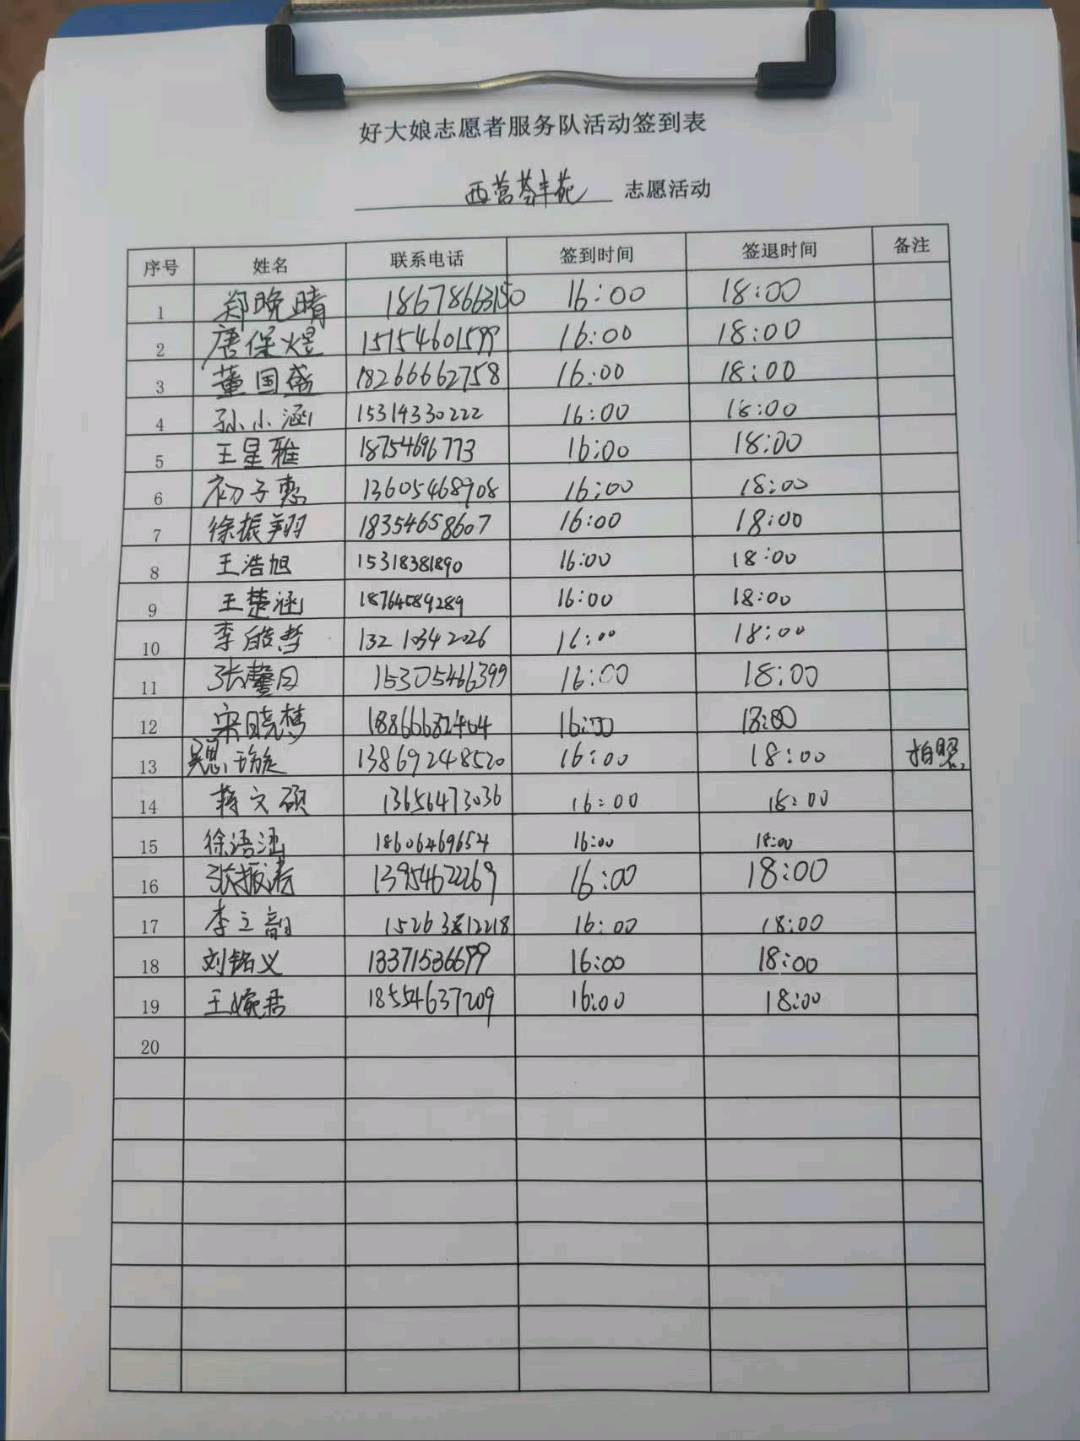 好大娘志愿者服务队活动签到表
西营荟丰苑 志愿活动
序号 姓名 联系电话 签到时间 签退时间 备注
1 郑晚晴 18678663150 16:00 18:00
2 唐保煜 15154601599 16:00 18:00
3 董国盛 18266662758 16:00 18:00
4 孙小涵 15314330222 16:00 18:00
5 王星雅 18754696773 16:00 18:00
6 初子惠 13605468908 16:00 18:00
7 徐振翔 18354658607 16:00 18:00
8 王浩旭 15318381890 16:00 18:00
9 王楚涵 18764589289 16:00 18:00
10 李皓哲 13210342026 16:00 18:00
11 张馨日 15305466399 16:00 18:00
12 宋晓梦 16:00 18:00
13 吴思璇 13869248520 16:00 18:00 拍照
14 蒋文硕 13656473036 16:00 18:00
15 徐语涵 18606469654 16:00 18:00
16 张振涛 13954622269 16:00 18:00
17 李立韵 15263812218 16:00 18:00
18 刘铭义 13371536699 16:00 18:00
19 王婉君 18554637209 16:00 18:00
20